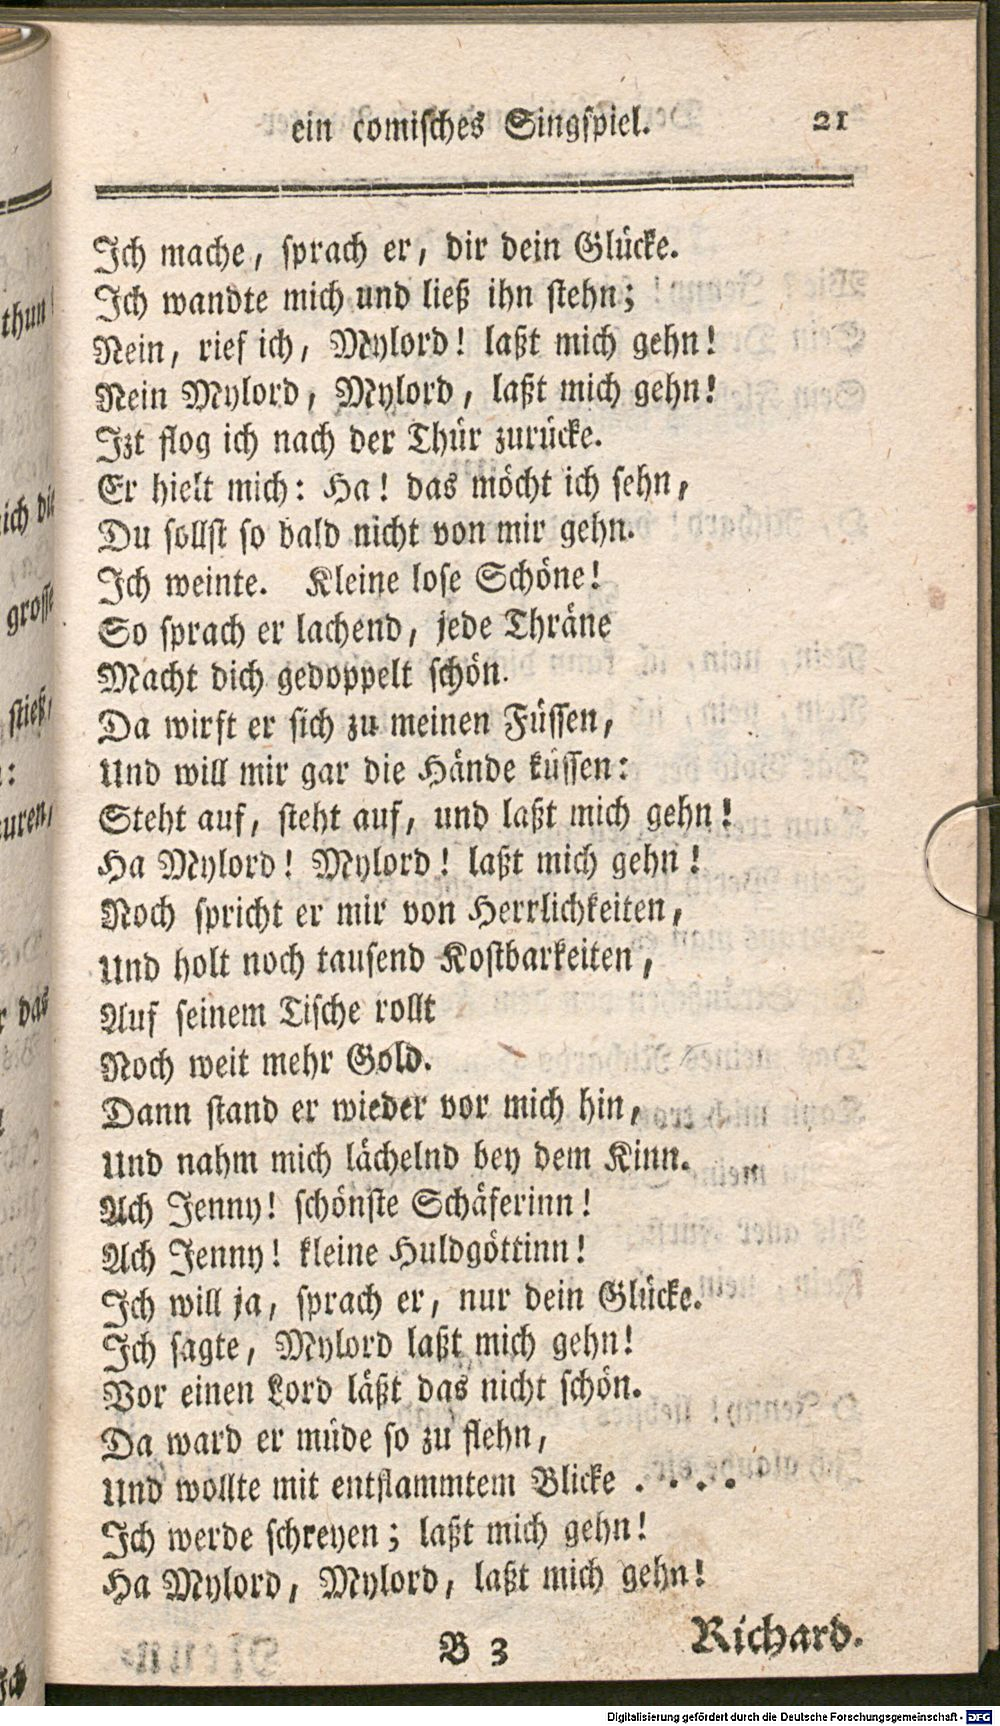 ein comisches Singspiel. 21
Ich mache, sprach er, dir dein Glücke.
Ich wandte mich und ließ ihn stehn;
Nein, rief ich, Mylord! laßt mich gehn!
Nein Mylord, Mylord, laßt mich gehn!
Izt flog ich nach der Thür zurücke.
Er hielt mich: Ha! das möcht ich sehn,
Du sollst so bald nicht von mir gehn.
Ich weinte. Kleine lose Schöne!
So sprach er lachend, jede Thräne
Macht dich gedoppelt schön.
Da wirft er sich zu meinen Füssen,
Und will mir gar die Hände küssen:
Steht auf, steht auf, und laßt mich gehn!
Ha Mylord! Mylord! laßt mich gehn!
Noch spricht er mir von Herrlichkeiten,
Und holt noch tausend Kostbarkeiten,
Auf seinem Tische rollt
Noch weit mehr Gold.
Dann stand er wieder vor mich hin,
Und nahm mich lächelnd bey dem Kinn.
Ach Jenny! schönste Schäferinn!
Ach Jenny! kleine Huldgöttinn!
Ich will ja, sprach er, nur dein Glücke.
Ich sagte, Mylord laßt mich gehn!
Vor einen Lord läßt das nicht schön.
Da ward er müde so zu flehn,
Und wollte mit entflammtem Blicke . . . .
Ich werde schreyen; laßt mich gehn!
Ha Mylord, Mylord, laßt mich gehn!
B 3 Richard.
thun
grosse
stieß,
das
Digitalisierung gefördert durch die Deutsche Forschungsgemeinschaft - DFG